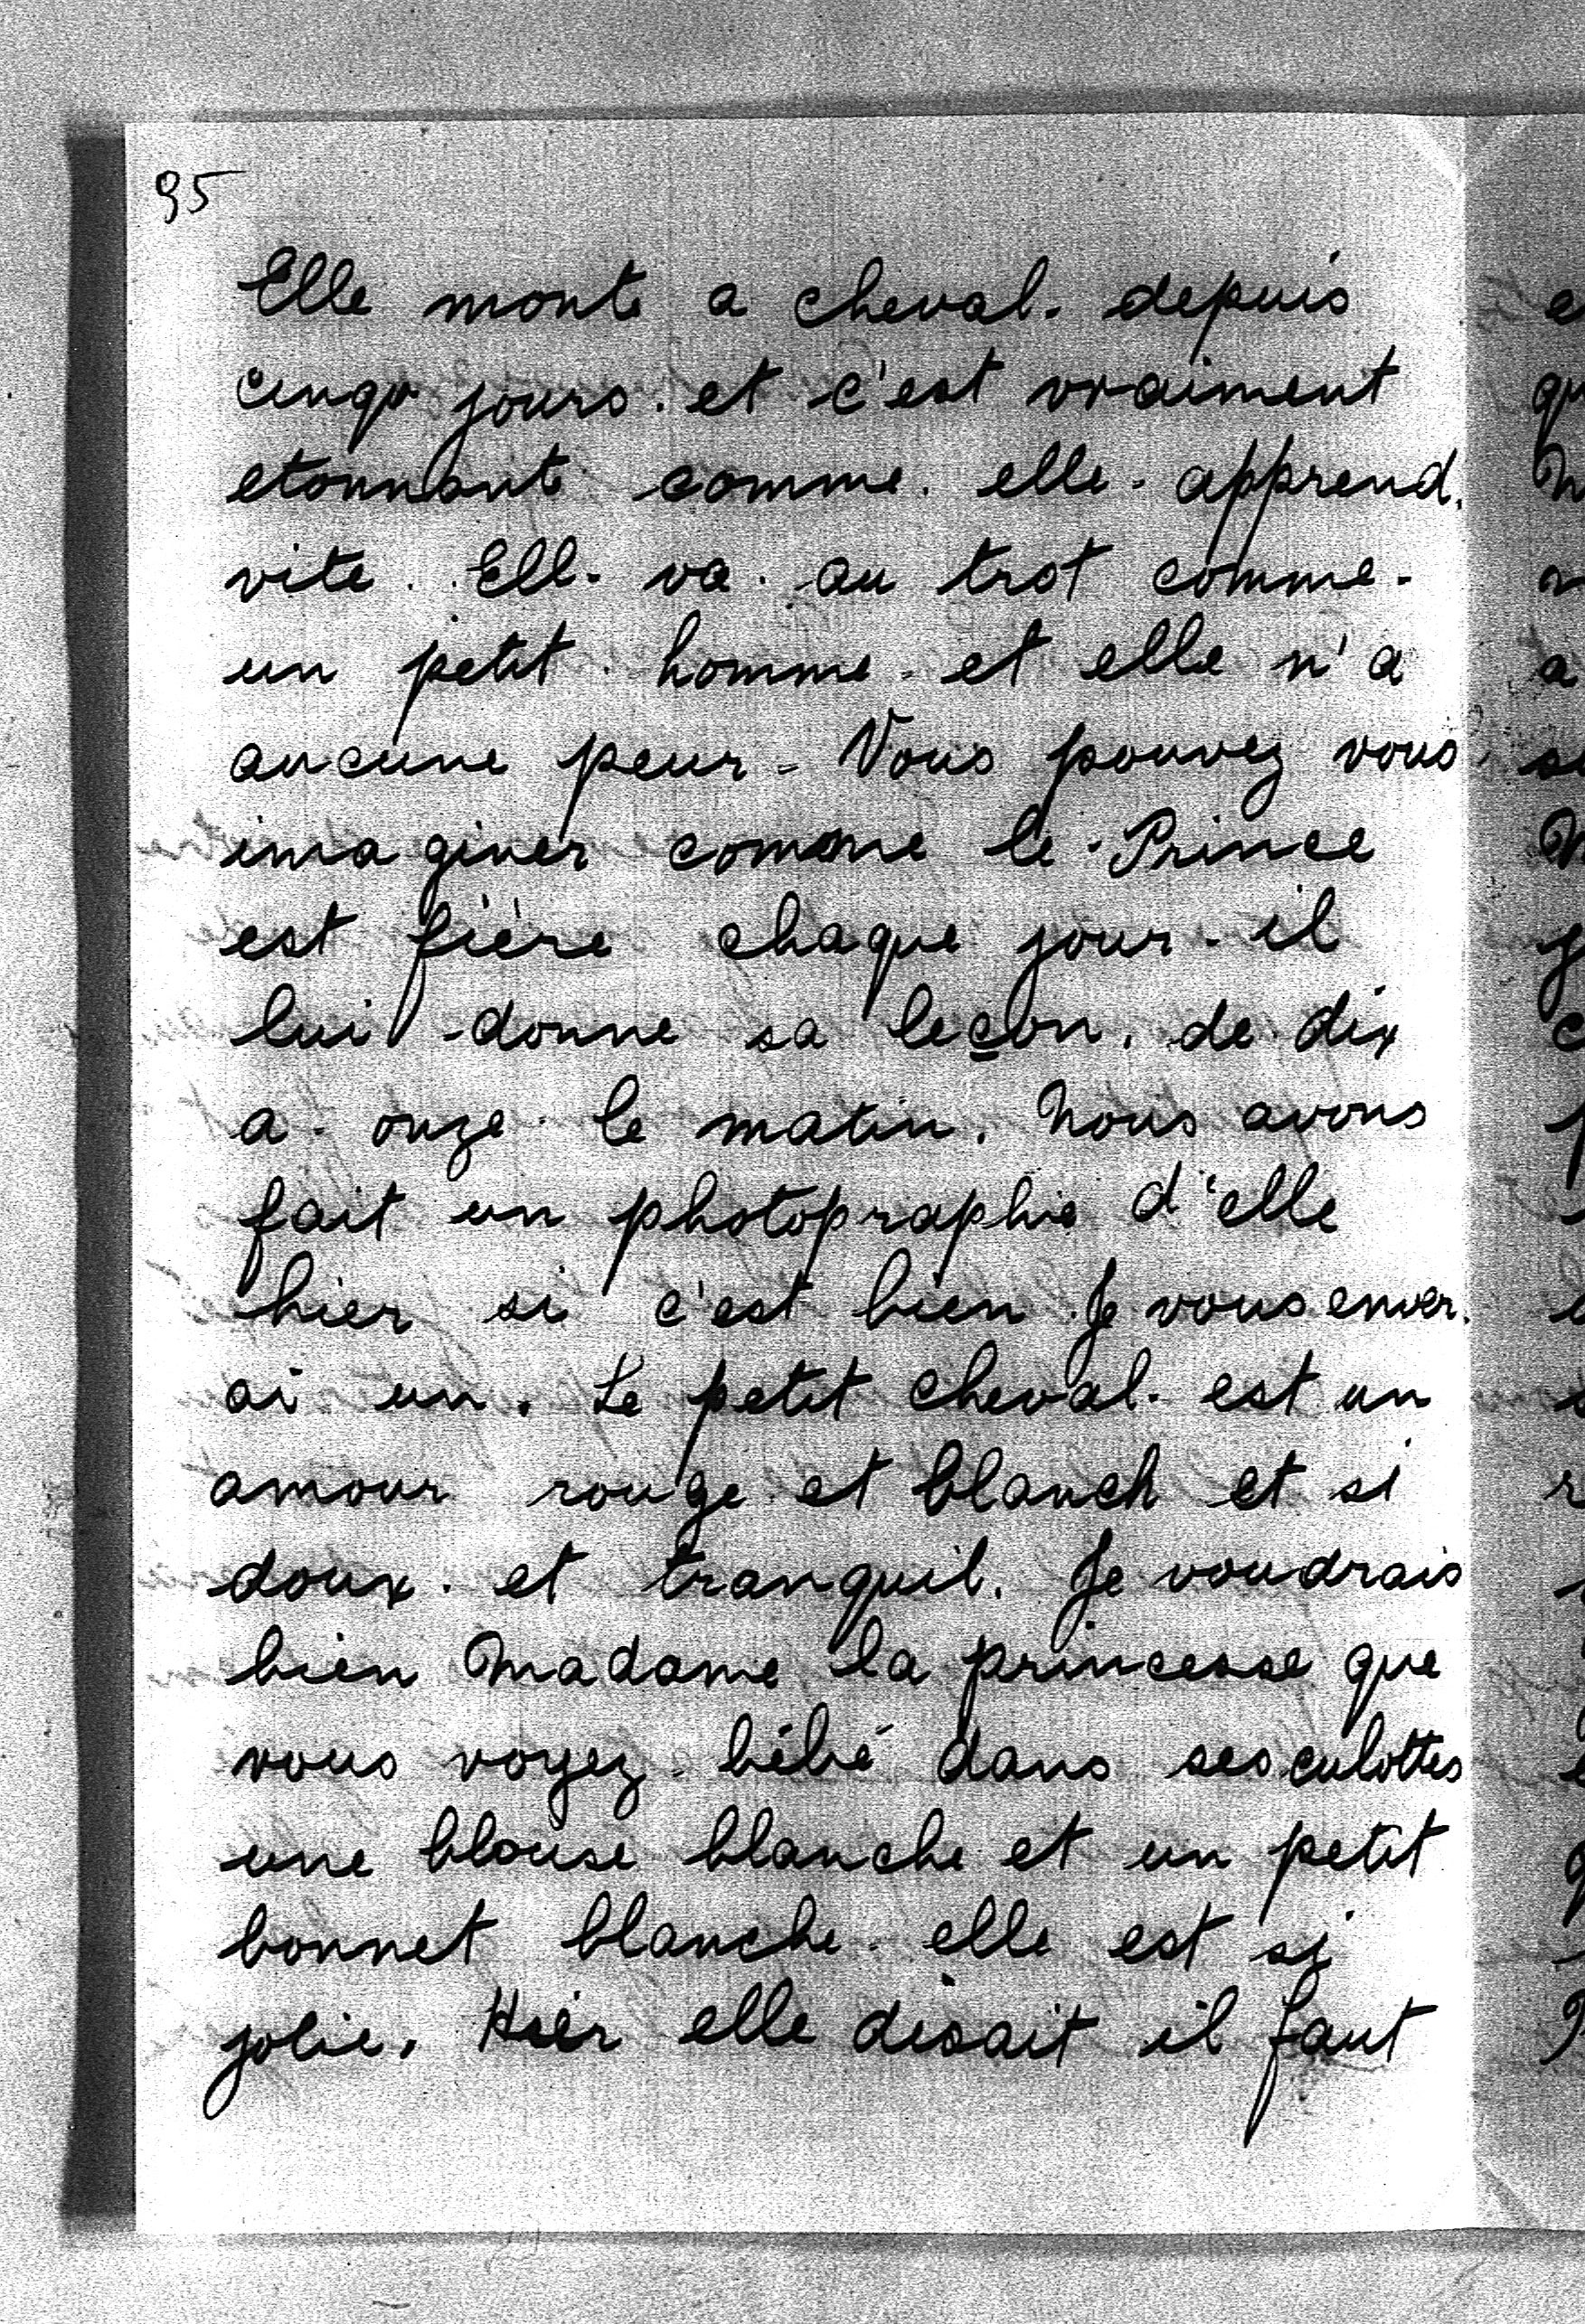 95
Elle monte a cheval. depuis
cinqu jours. et c'est vraiment
etonnante comme. elle. apprend.
vite. Ell. va. au trot comme.
un petit. homme. et elle n'a
aucune peur. Vous pouvez vous
imaginer comome le Prince
est fière chaque jour. il
lui donne sa leçon. de dix
a. onze le matin. Nous avons
fait un photopraphie d'elle
hier si c'est bien Je vous enver.
ai un. Le petit cheval. est un
amour rouge et blanch et si
doux. et tranquil. Je voudrais
bien Madame la princesse que
vous voyez bébé dans ses culottes
une blouse blanche et un petit
bonnet blanche. elle est si
jolie. Hier elle disait il faut